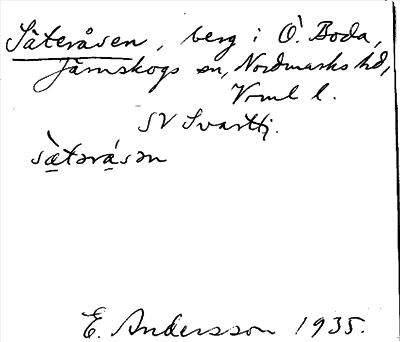 Säteråsen, berg i Ö. Boda,
Järnskogs sn, Nordmarks hd,
Vrml l.
SV Svarttj.
sä̀tərásən
E. Andersson 1935.